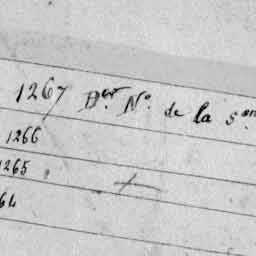 1267 Der No. de la son
1266
1265
64